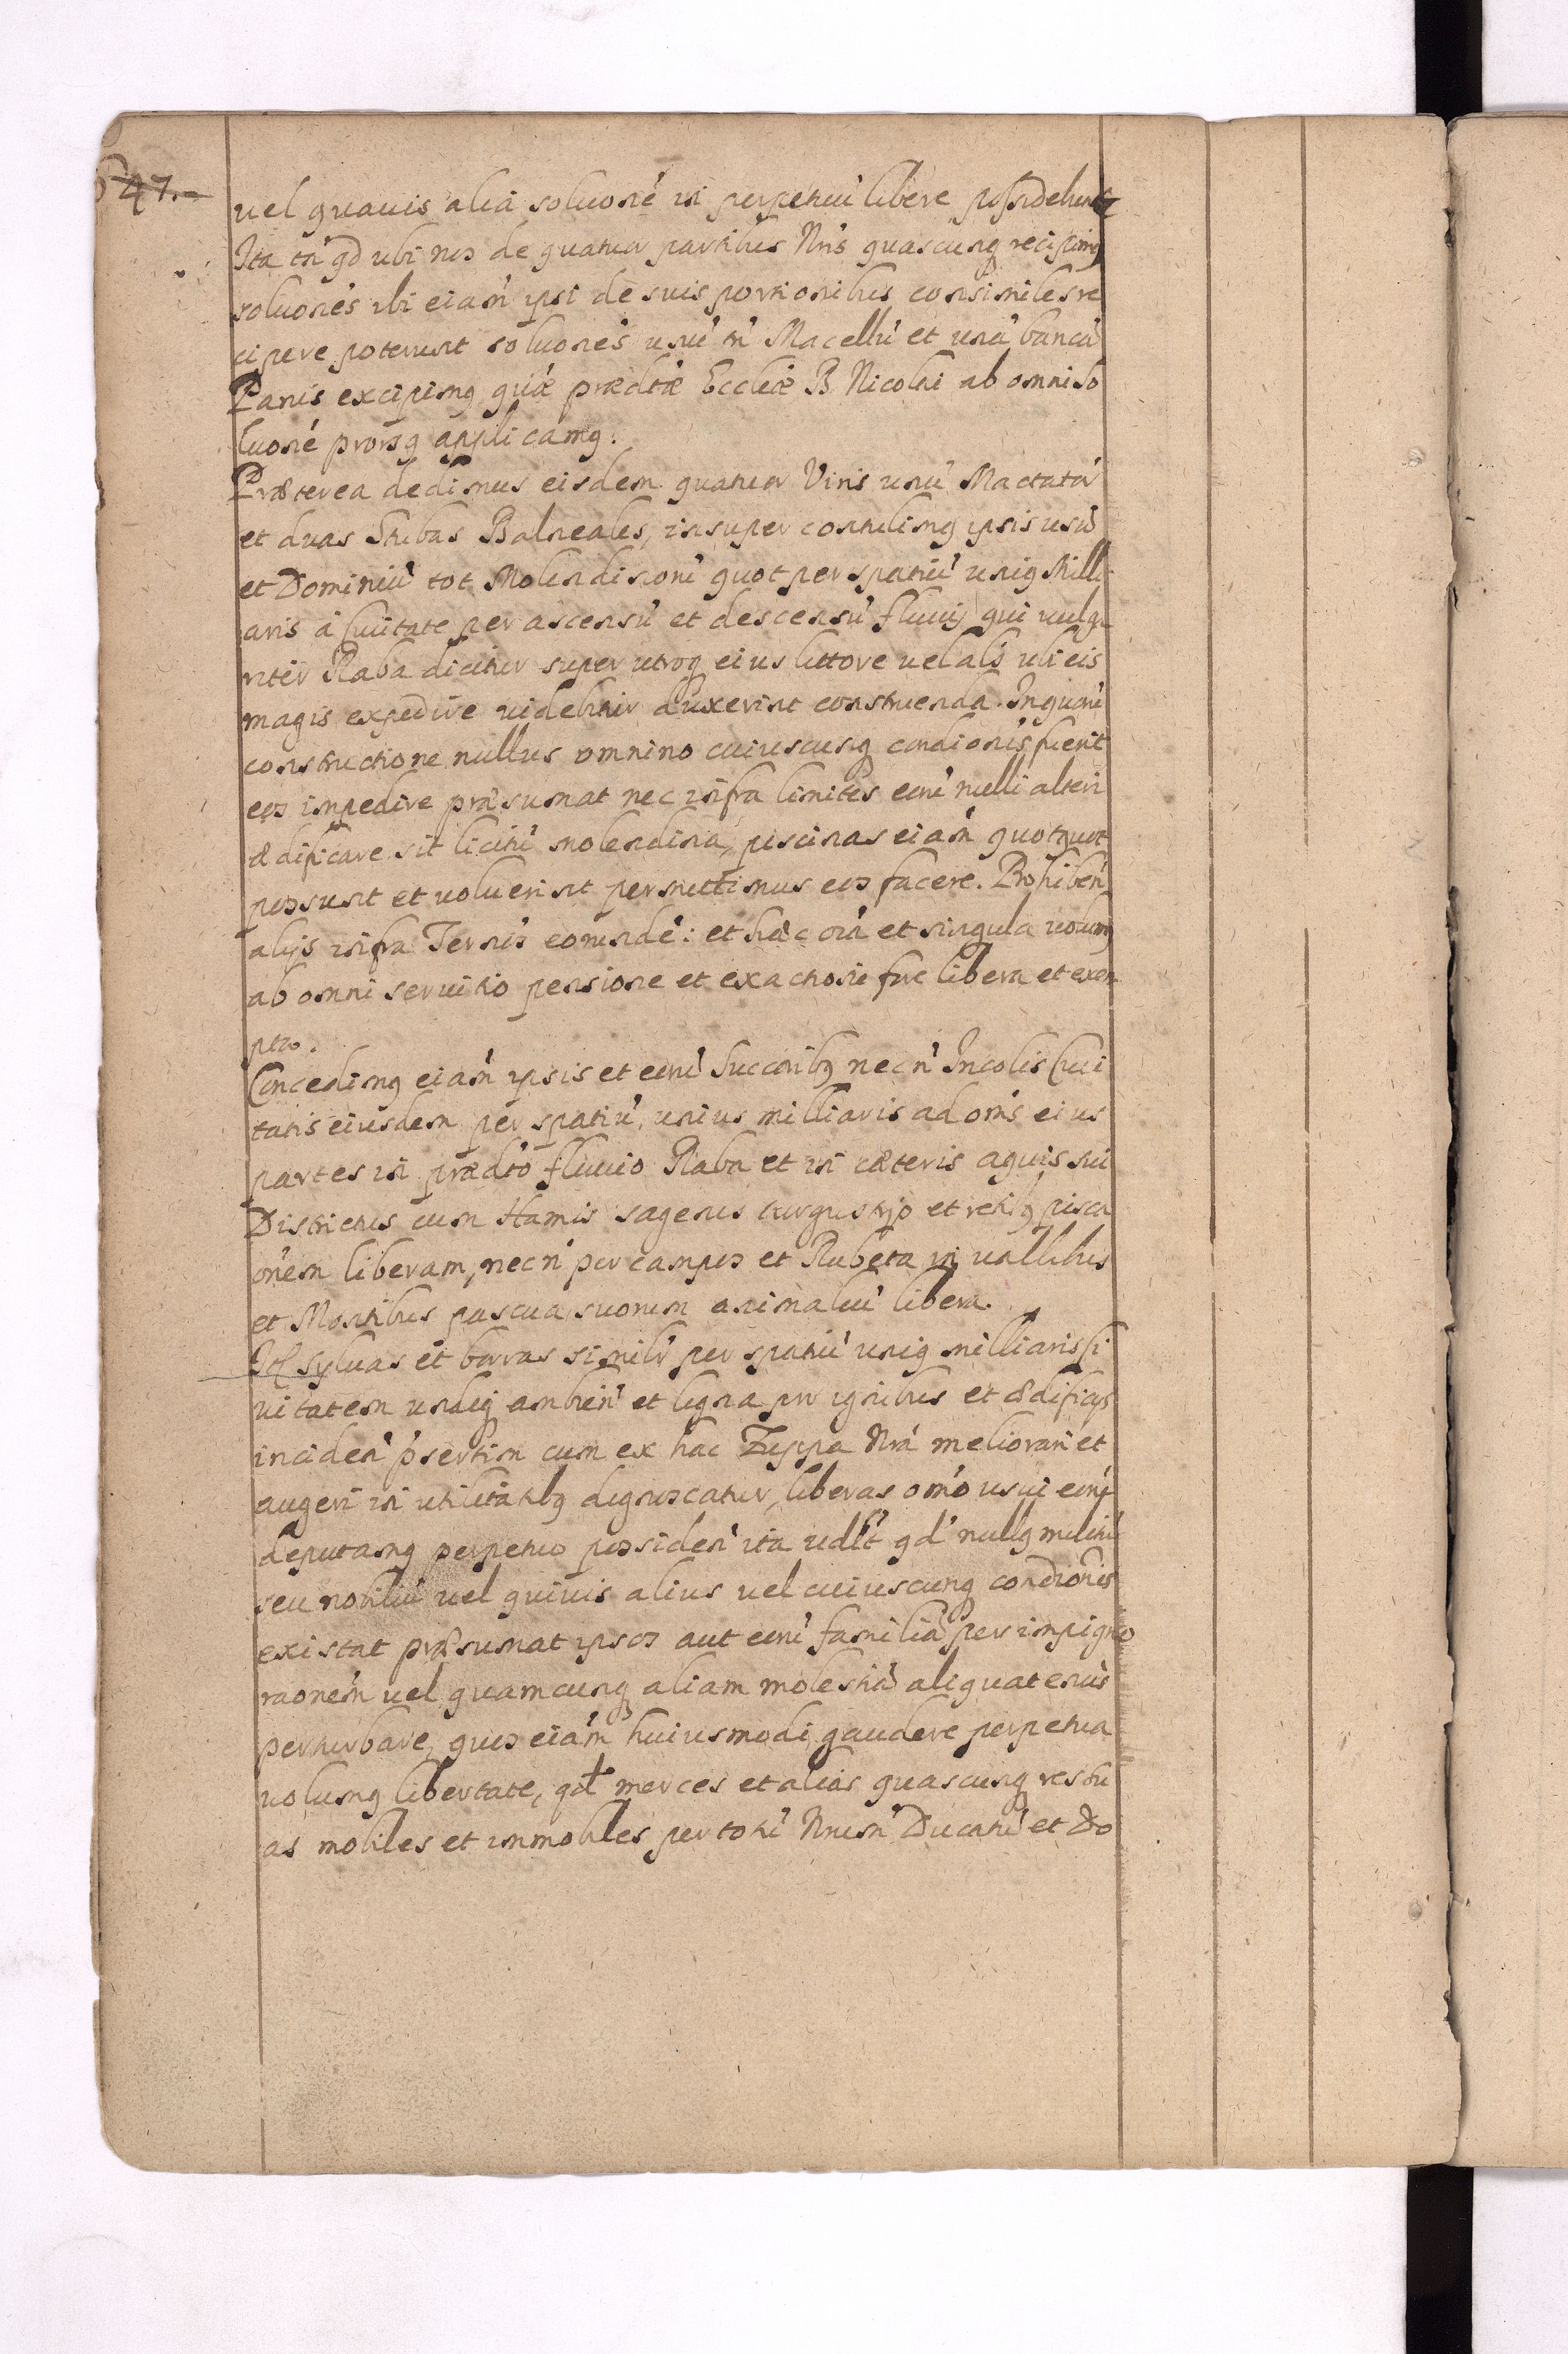 47.
uel quauis alia soluoné in perpetuú libere possidebunt
Ita tń qd ubi nos de quatuor partibus Nris quascunq recipimq
soluonés ibi eiám ipsi de suis portionibus consimiles re
cipere poterunt soluonés unú tń Macellú et unú bancú
Panis excipimq quæ prædtæ Ecclæ B Nicolai ab omni so
luoné prorsq applicamq.
Præterea dedimus eisdem quatuor Viris unú Mactator
et duas Stubas Balneales, insuper contulimq ipsis usú
et Dominiú tot Molendinorú quot per spatiú uniq Milli
aris á Ciuitate per ascensú et descensú fluuij qui uulga
riter Raba dicitur super utroq eius littore uel alś ubi eis
magis expedire uidebitur duxerint construenda. In quarú
constructione nullus omnino cuiuscunq condionis fuerit
eos impedire præsumat nec infra limites eorú nulli alteri
ædificare sit licitú molendina, piscinas eiám quotquot
possunt et uoluerint permittimus eos facere. Prohibeń
alijs infra Ternis eorundé: et hæc oiá et singula uolumq
ab omni seruitio pensione et exactione fore libera et exem
pta.
Concedimq eiám ipsis et eorú Succoribq necń Incolis Ciui
tatis eiusdem per spatiú, unius milliaris ad oms eius
partes in prædto fluuio Raba et in cæteris aquis sui
Districtus cum Hamis sagenis et retibq pisca
onem liberam, necń per campos et Rubeta in uallibus
et Montibus pascua suorum animaliú libera.
Itē syluas et borras similr per spatiú uniq milliaris Ci
uitatem undiq ambień et ligna pro ignibus et ædificijs
incideń psertim cum ex hac Zuppa Nrá meliorari et
augeri in utilitatibq dignoscatur, liberas omó usui eorú
deputamq perpetuo possideń ita udlt qd nullq militú
seu nobiliú uel quiuis alius uel cuiuscunq condionis
existat præsumat ipsos aut eorú familiá per impigno
raoném uel quamcunq aliam molestiá aliquatenus
perturbare, quos eiám huiusmodi gaudere perpetua
uolumq libertate, qd merces et alias quascunq res su
as mobiles et immobiles per totú Nrum Ducatú et Do